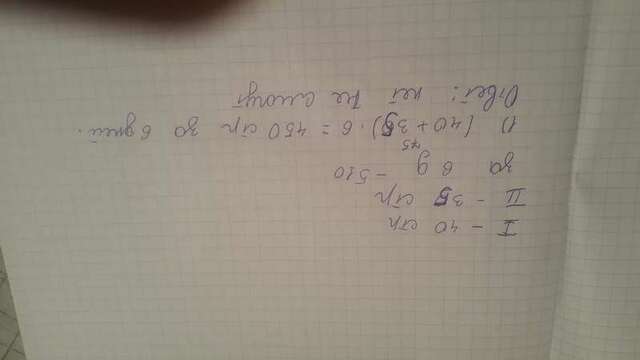 I - 40 стр
II - 35 стр
за 6 д - 510
75
1) (40+35)·6=450 стр за 6 дней.
Ответ: нет не смогут